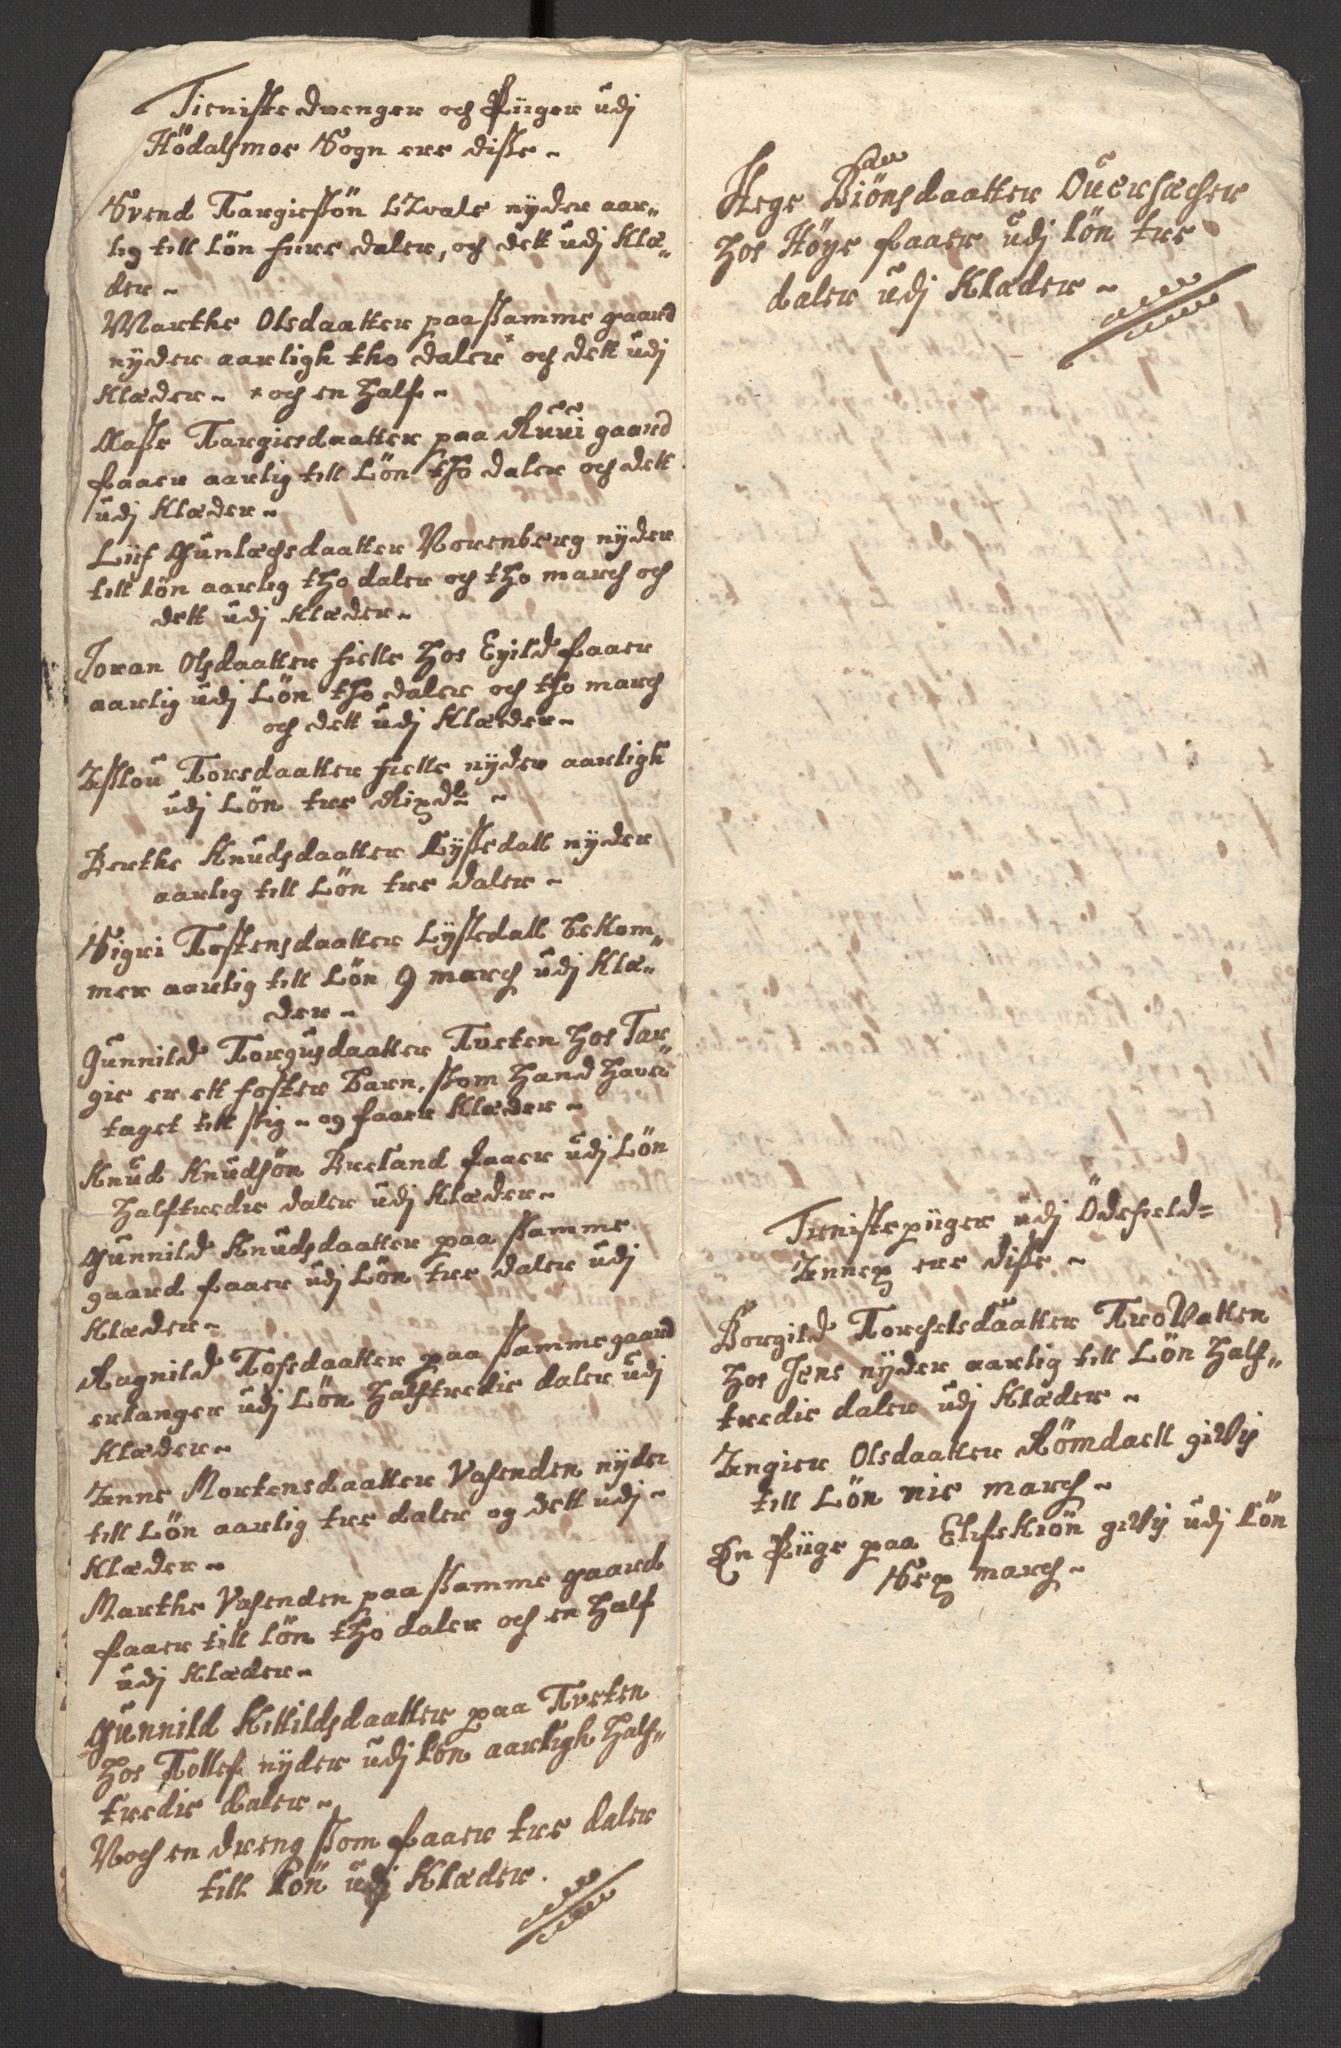 Tieniste drenger och Piiger udj
Hödalsmoe Sogn ere disse ~
Svend Targiessön Qvale nÿder aar„
lig till Lön fiire daler, og dett udj Klæ„
der ~
Marthe Olsdaatter paa samme gaard
nÿder aarligh tho daler och dett udj
Klæder ~ * och en half ~
Aasse Targiesdaatter paa Ruui gaard
faaer aarlig till Lön tho daler och dett
udj Klæder ~
Liif Gunlachsdaatter Norenberg nÿder
till Lön aarlig tho daler och tho march och
dett udj Klæder ~
Joran Olsdaatter fielle hos Eyild faaer
aarlig udj Lön tho daler och tho march
och dett udj Klæder ~
Asslou Torsdaatter fielle nÿder aarligh
udj Lön tre Rixdlr ~
Berthe Knudsdaatter Lÿssedall nÿder
aarlig till Lön tre daler ~
Sigri Tostensdaatter Lÿssedall bekom„
mer aarlig till Lön 9 march udj Klæ„
der ~
Gunnild Torgusdaatter Tveten hos Tar„
gie er ett foster Barn, som hand haver
taget till sig ~ og faaer Klæder ~
Knud Knudsön Breland faaer udj Lön
halftredie daler udj Klæder ~
Gunnild Knudsdaatter paa samme
gaard faaer udj Lön tre daler udj
Klæder ~
Ragnild Tofsdaatter paa samme gaard
erlanger udj Lön halftredie daler udj
Klæder ~
Anne Mortensdaatter Vasenden nÿder
till Lön aarlig tre daler og dett udj ~
Klæder ~
Marthe Vasenden paa samme gaard
faaer till Lön tho daler och en half
udj Klæder ~
Gunnild Kittildsdaatter paa Tveten
hos Tollef nÿder udj Lön aarligh half„
tredie daler ~
Noch en dreng som faaer tre daler
till Lön udj Klæder.
Hege Biönsdaatter Ouersacher
hos Höye faaer udj Lön tre
daler udj Klæder ~
Tienistepiiger udj Ödefield=
Annex ere disse ~
Borgild Torchelsdaatter TroVatten
hos Jens nÿder aarlig till Lön half„
tredie daler udj Klæder ~
Angier Olsdaatter Römdall gives
till Lön nie march ~
En Piige paa Elifskiön gives udj Lön
Sex march ~